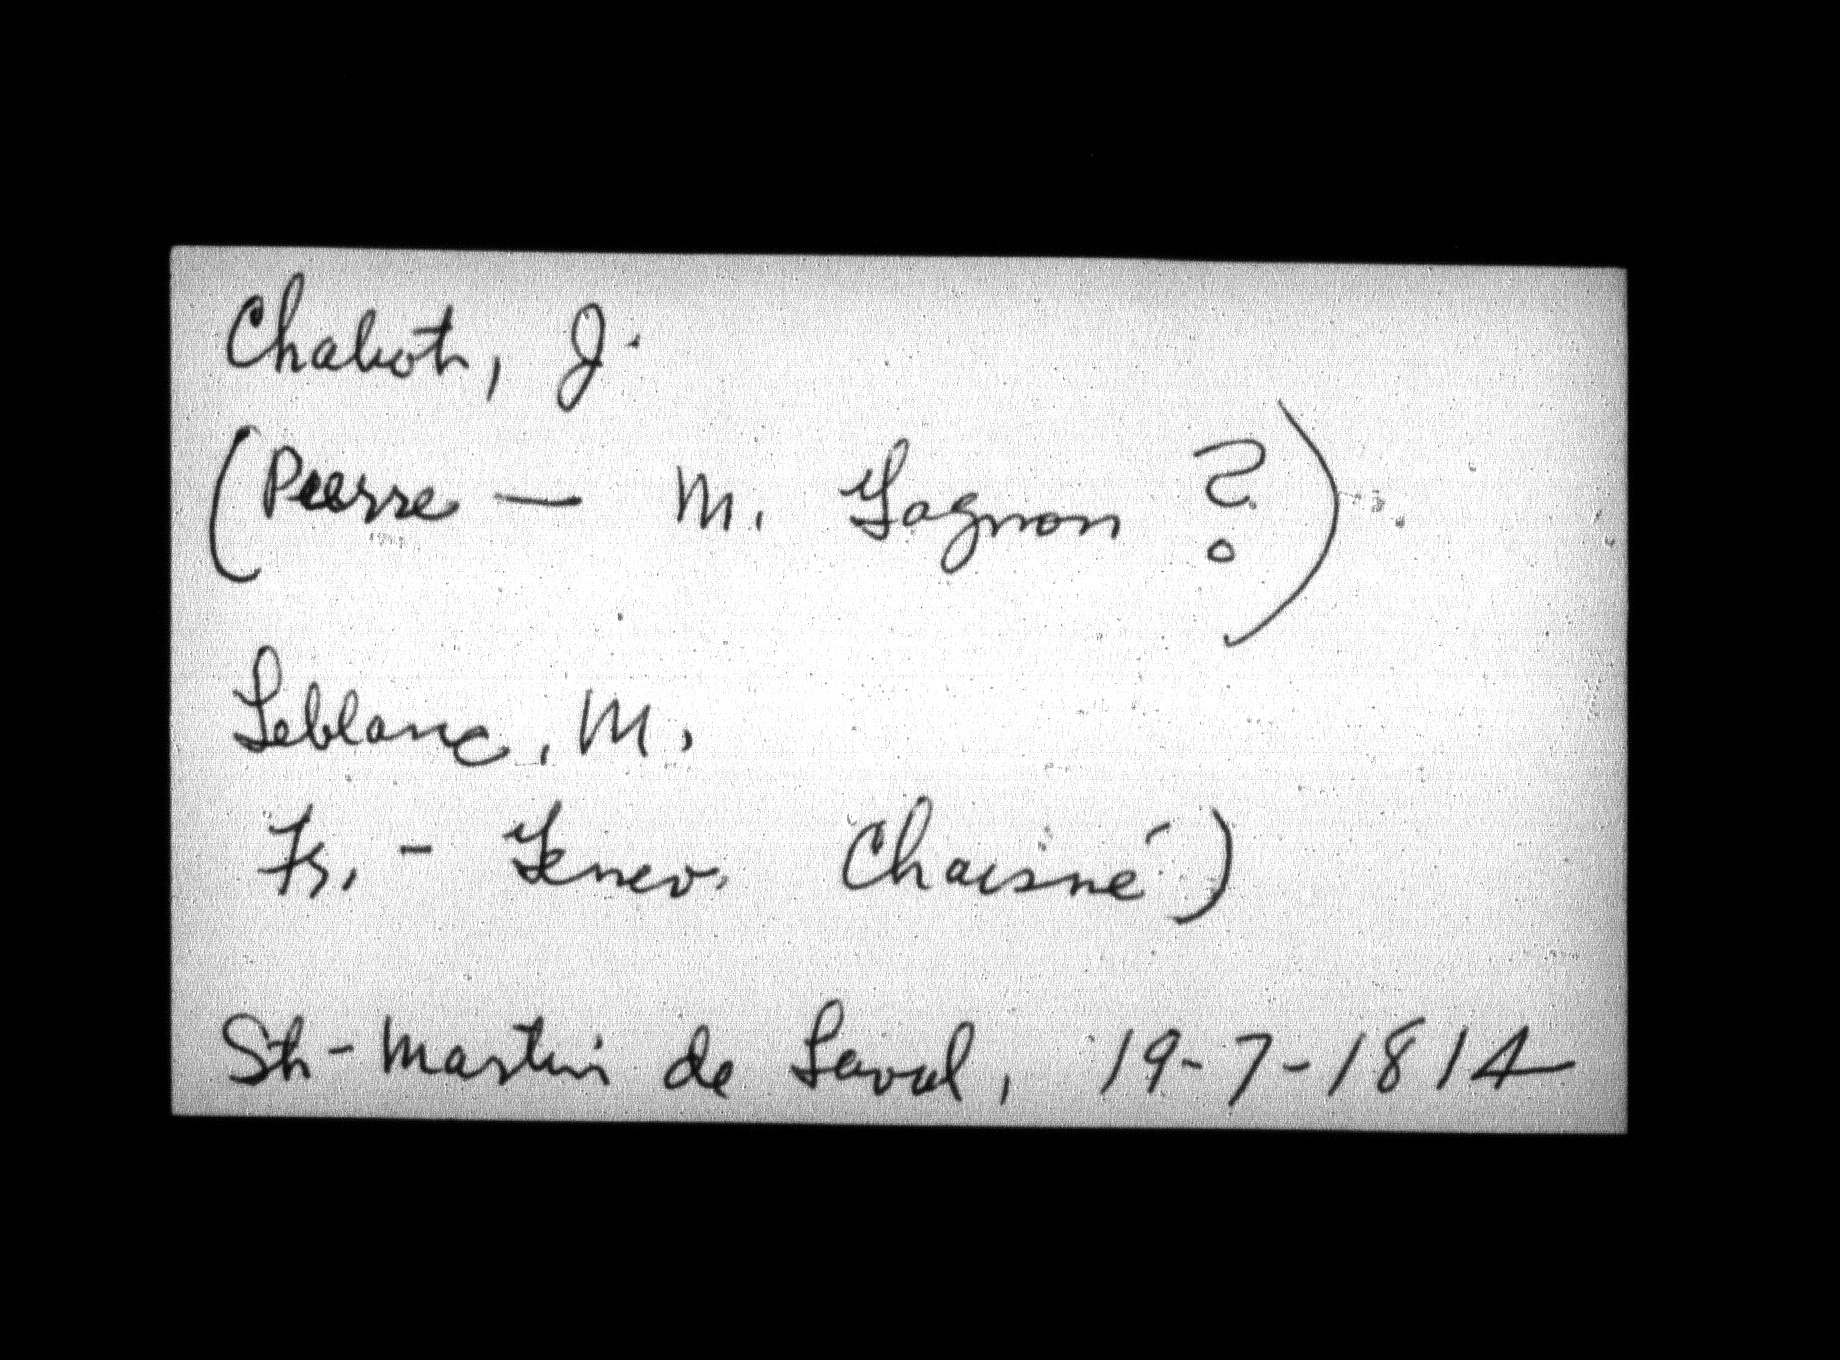 Chabot, J.
(Pierre — M. Gagnon ?)
Leblanc, M.
Fs. - Genev. Chaisné)
St-Martin de Laval, 19-7-1814